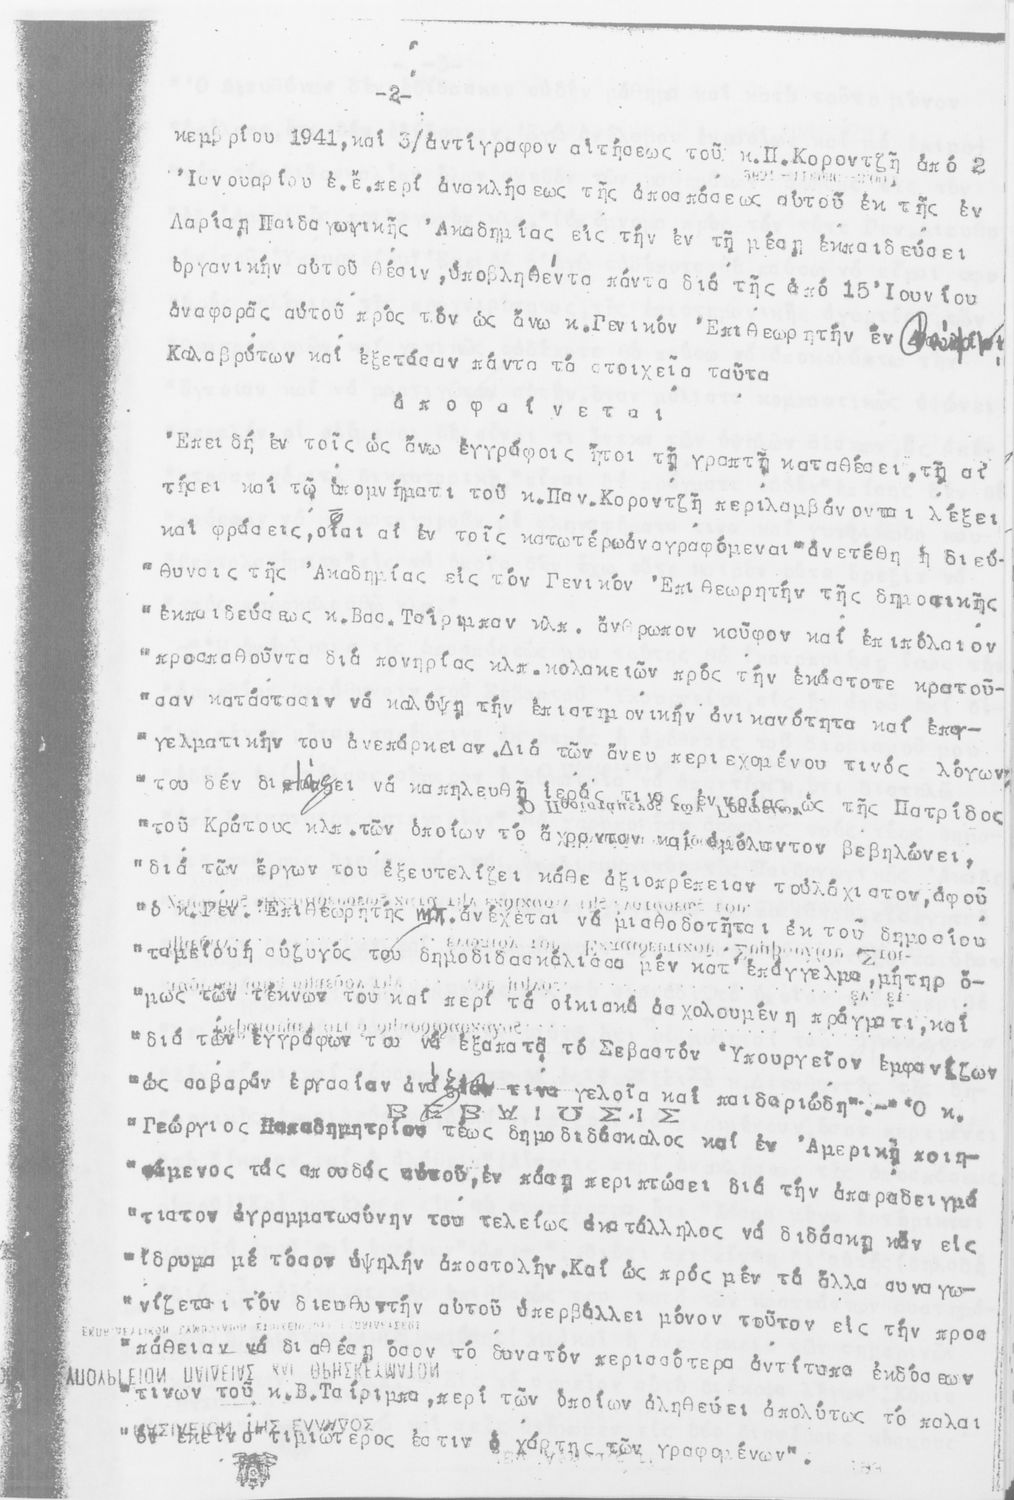 -2-
κεμβρίου 1941, καί 3/ἀντίγραφον αἰτήσεως τοῦ κ.Π.Κοροντζῆ ἀπό 2
Ἰανουαρίου ἐ.ἔ.περί ἀνακλήσεως τῆς ἀποσπάσεως αὐτοῦ ἐκ τῆς ἐν
Λαρίσῃ Παιδαγωγικῆς Ἀκαδημίας εἰς τήν ἐν τῇ μέσῃ ἐκπαιδεύσει
ὀργανικήν αὐτοῦ θέσιν, ὑποβληθέντα πάντα διά τῆς ἀπό 15 Ἰουνίου
ἀναφορᾶς αὐτοῦ πρός τόν ὡς ἄνω κ.Γενικόν Ἐπιθεωρητήν ἐν
Καλαβρύτων καί ἐξετάσαν πάντα τά στοιχεῖα ταῦτα
ἀ π ο φ α ί ν ε τ α ι
Ἐπειδή ἐν τοῖς ὡς ἄνω ἐγγράφοις ἤτοι τῇ γραπτῇ καταθέσει, τῇ αἰ
τήσει καί τῷ ὑπομνήματι τοῦ κ.Παν.Κοροντζῆ περιλαμβάνονται λέξει
καί φράσεις, οἷαι αἱ ἐν τοῖς κατωτέρωἀναγραφόμεναι "ἀνετέθη ἡ διεύ-
"θυνσις τῆς Ἀκαδημίας εἰς τόν Γενικόν Ἐπιθεωρητήν τῆς δημοτικῆς
"ἐκπαιδεύσεως κ.Βασ.Τσίριμπαν κλπ. ἄνθρωπον κοῦφον καί ἐπιπόλαιον
"προσπαθοῦντα διά πονηρίας κλπ.κολακειῶν πρός τήν ἑκάστοτε κρατοῦ-
"σαν κατάστασιν νά καλύψῃ τήν ἐπιστημονικήν ἀνικανότητα καί ἐπαγ-
"γελματικήν του ἀνεπάρκειαν.Διά τῶν ἄνευ περιεχομένου τινός λόγων
"του δέν διστάζει νά καπηλευθῇ ἱεράς τινας ἐννοίας, ὡς τῆς Πατρίδος
"τοῦ Κράτους κλπ.τῶν ὁποίων τό ἄχραντον καί ἀμόλυντον βεβηλώνει,
"διά τῶν ἔργων του ἐξευτελίζει κάθε ἀξιοπρέπειαν τοὐλάχιστον, ἀφοῦ
"ὁ κ.Γεν. Ἐπιθεωρητής κλπ.ἀνέχεται νά μισθοδοτῆται ἐκ τοῦ δημοσίου
"ταμείουἡ σύζυγός του δημοδιδασκάλισσα μέν κατ' ἐπάγγελμα, μήτηρ ὅ-
"μως τῶν τέκνων του καί περί τά οἰκιακά ἀσχολουμένη πράγματι, καί
"διά τῶν ἐγγράφων του νά ἐξαπατᾷ τό Σεβαστόν Ὑπουργεῖον ἐμφανίζων
"ὡς σοβαράν ἐργασίαν ἀνάξιαν τινα γελοῖα καί παιδαριώδη".-"Ὁ κ.
ΒΕΒΑΙΩΣΙΣ
"Γεώργιος Παπαδημητρίου τέως δημοδιδάσκαλος καί ἐν Ἀμερικῇ ποιη-
"σάμενος τάς σπουδάς αὐτοῦ, ἐν πάσῃ περιπτώσει διά τήν ἀπαραδειγμά
"τιστον ἀγραμματωσύνην του τελείως ἀκατάλληλος νά διδάσκῃ κἄν εἰς
"ἵδρυμα μέ τόσον ὑψηλήν ἀποστολήν.Καί ὡς πρός μέν τά ἄλλα συναγω-
"νίζεται τόν διευθυντήν αὐτοῦ ὑπερβάλλει μόνον τοῦτον εἰς τήν προσ
"πάθειαν νά διαθέσῃ ὅσον τό δυνατόν περισσότερα ἀντίτυπα ἐκδόσεων
ΥΠΟΥΡΓΕΙΟΝ ΠΑΙΔΕΙΑΣ ΚΑΙ ΘΡΗΣΚΕΥΜΑΤΩΝ
"τινων τοῦ κ.Β.Τσίριμπα, περί τῶν ὁποίων ἀληθεύει ἀπολύτως τό παλαι
ΒΑΣΙΛΕΙΟΝ ΤΗΣ ΕΛΛΑΔΟΣ
"όν ἐκεῖνο τιμιώτερος ἐστιν ὁ χάρτης τῶν γραφομένων".